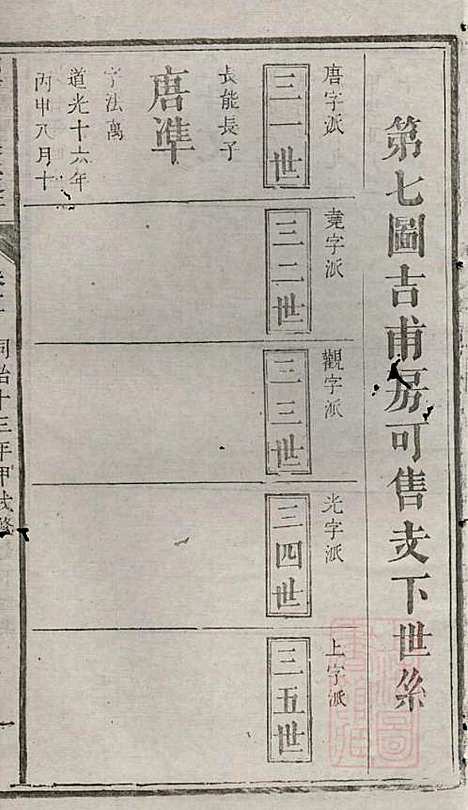 第七圖吉甫房可售支下世系
唐字派
三一世
長能長子
唐準
字法萬
道光十六年
丙申八月十
堯字派
三二世
觀字派
三三世
光字派
三四世
上字派
三五世
同治十三年甲戌